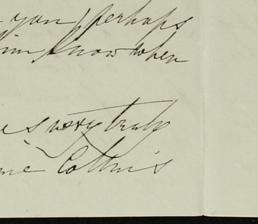 you, perhaps
him know when
very truly
Collins